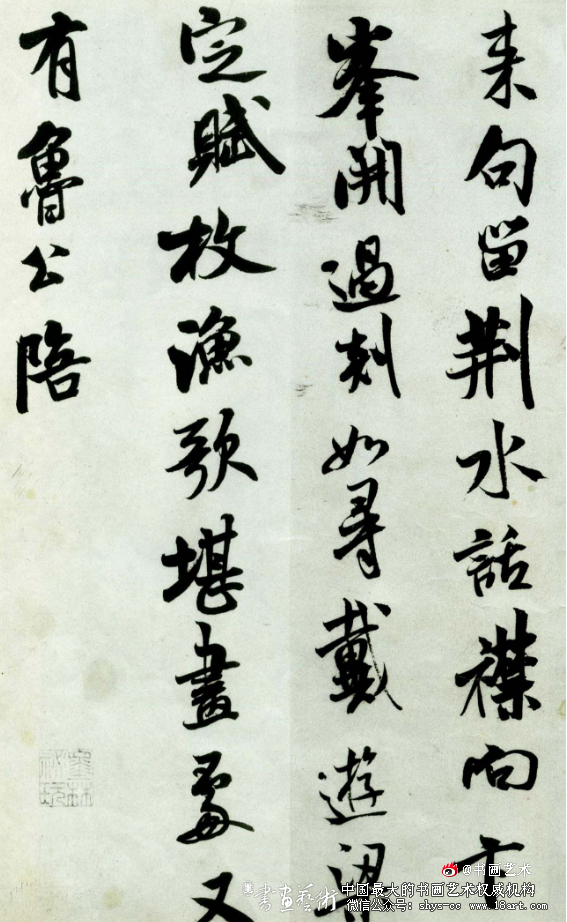 来句留荆水話襟向
峯開過剡如尋戴遊梁
定賦枚漁歌堪畫處又
有魯公陪
@书画艺术
書畫藝術
中国最大的书画艺术权威机构
微信公众号：shys-cc www.18art.com